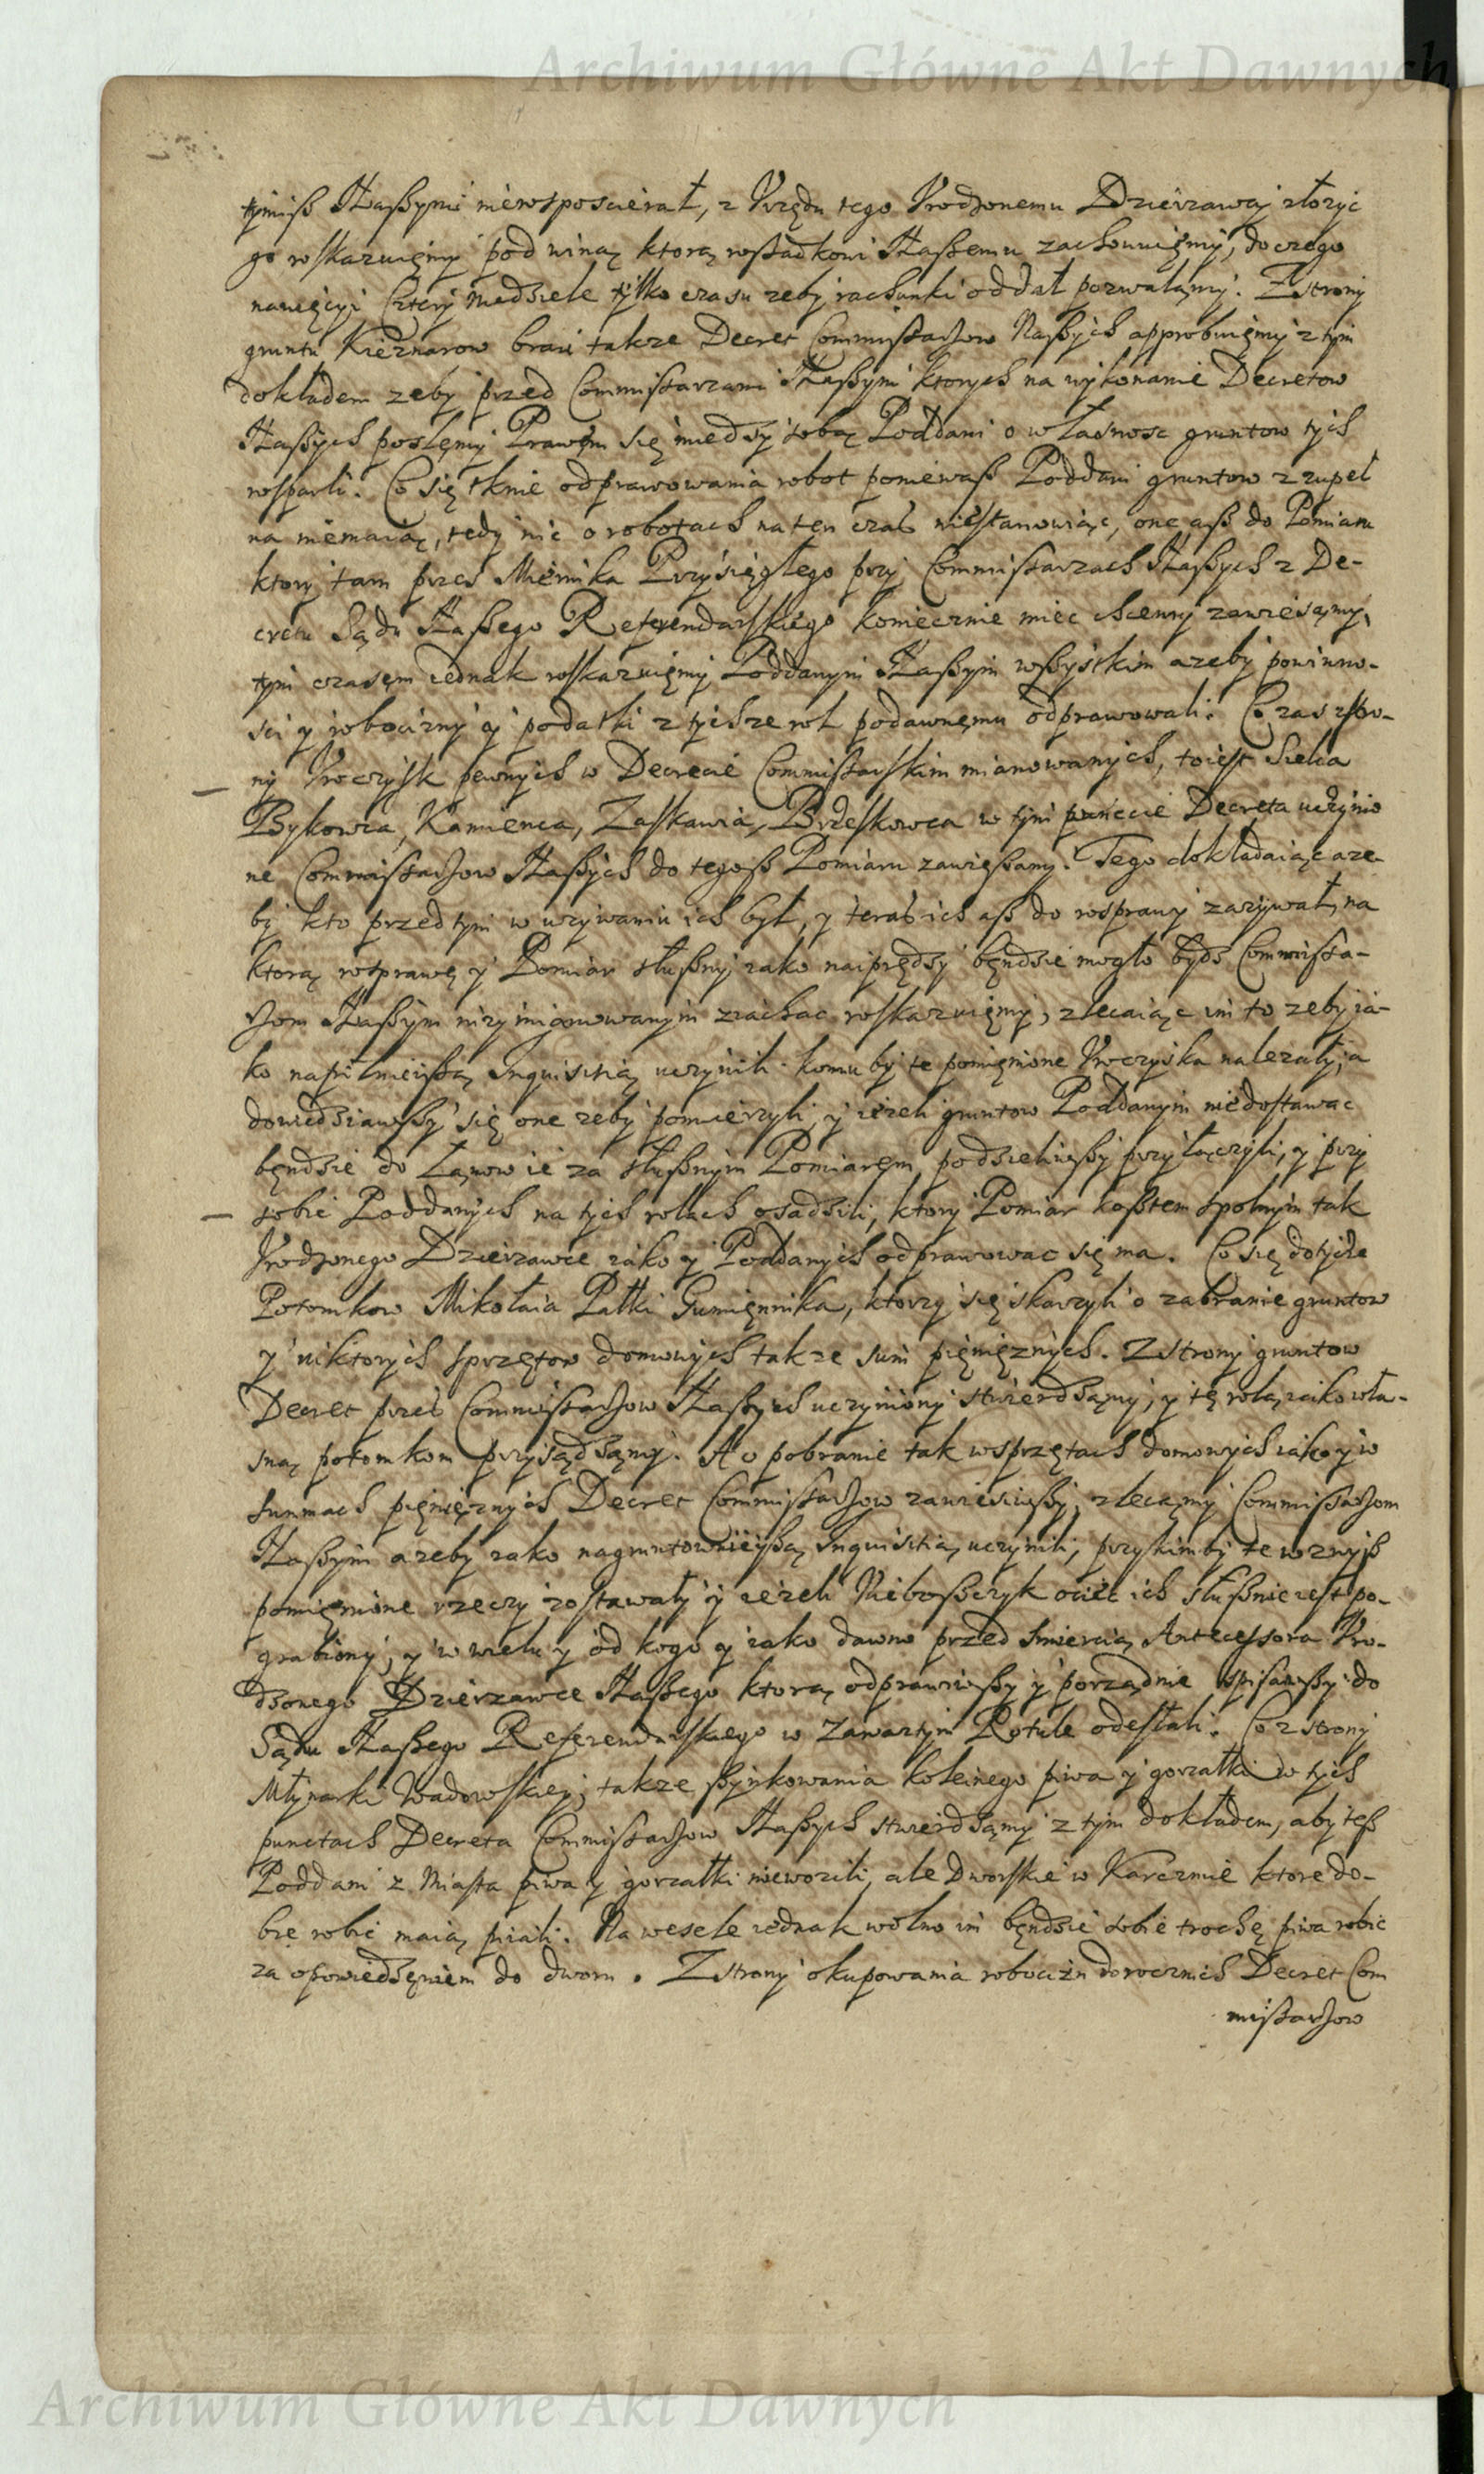 Archiwum Główne Akt Dawnych
tymiß Naßymi niewsposcierał, z Vrzędu tego Vrodzonemu Dzierzawcy złozyc
go roskazuięmy pod winą ktorą rossadkowi Naßemu zachowuięmy, do czego
nawięcyi cztery niedziele tylko czasu zeby rachunki oddał pozwalamy. Z strony
gruntu Kieznarow braci takze Decret Commissarzow Naßych approbuięmy z tym
dokładem zeby przed Commissarzami Naßymi ktorych na wykonanie Decretow
Naßych poslęmy Prawęm się miedzy sobą Poddani o własnosc gruntow tych
rosparli. Co się tknie odprawowania robot poniewaß Poddani gruntow zupeł
na niemaią, tedy nic o robotach na ten czas niestanowiąc, one aß do Pomiaru
ktory tam przes Miernika Przysięgłego przy Commissarzach Naßych z De-
cretu Sądu Naßego Referendarskiego koniecznie miec chcemy zawiesamy,
tym czasęm iednak roskazuięmy Poddanym Naßym wßystkim azeby powinno-
sci y robocizny y podatki z tychze rol podawnęmu odprawowali. Co zas z stro-
ny Vroczysk pewnych w Decrecie Commissarskim mianowanych, toiest Sielca
Bykowca, Kamienca, Zaskawia, Brzeskowca w tym punccie Decreta uczynio
ne Commissarzow Naßych do tegoß Pomiaru zawießamy. Tego dokładaiąc aze-
by kto przed tym w uzywaniu ich był, y teras ich aß do rosprawy zazywał, na
ktorą rosprawę y Pomiar słußny iako naiprędzy będzie mogło bydz Commissa-
rzom Naßym nizy mianowanym ziachac roskazuięmy, zlecaiąc im to zeby ia-
ko napilnieißą Inquisitią uczynili komu by te pomięnione Vroczyska nalezały, a
dowiedziawßy się one zeby pomierzyli, y iezeli gruntow Poddanym niedostawac
będzie do Łanow ie za słußnym Pomiaręm, podzieliwßy przyłączyli, y przy
sobie Poddanych na tych rolach osadzili, ktory Pomiar koßtem spolnym tak
Vrodzonego Dzierzawce iako y Poddanych odprawowac się ma. Co się dotycze
Potomkow Mikołaia Pałki Gumięnnika, ktorzy się skarzyli o zabranie gruntow
y niktorych sprzętow domowych takze sum pięnięznych. Z strony gruntow
Decret przes Commissarzow Naßych uczyniony stwierdzamy, y tę rolą iako wła-
sną potomkom przysądzamy. A o pobranie tak w sprzętach domowych iako y w
summach pięnięznych Decret Commissarzow zawiesiwßy, zlecamy Commissarzom
Naßym azeby iako nagruntownieißą Inquisitią uczynili, przy kim by te wzwyß
pomięnione rzeczy zostawały y iezeli Nieboßczyk ociec ich słußnie iest po-
grabiony, y w wielu y od kogo y iako dawno przed smiercią Antecessora Vro-
dzonego Dzierzawce Naßego ktorą odprawiwßy y porządnie spisawßy do
Sądu Naßego Referendarskiego w zawartym Rotule odesłali. Co z strony
Młynarki Wadowskiey, takze ßynkowania koleinego piwa y gorzałki w tych
punctach Decreta Commissarzow Naßych stwierdzamy z tym dokładem, aby teß
Poddani z Miasta piwa y gorzałki niewozili, ale Dworskie w Karczmie ktore do-
bre robic maią pijali. Na wesele iednak wolno im będzie sobie trochę piwa robic
za opowiedzęniem do dworu. Z strony okupowania robocizn dorocznich Decret Com
missarzow
Archiwum Główne Akt Dawnych